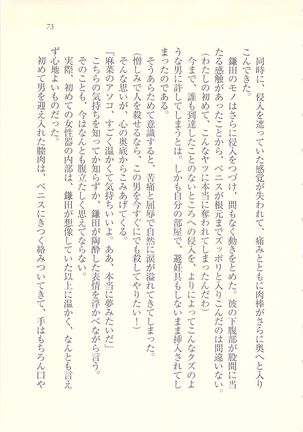 73
同時に、侵入を遮っていた感覚が失われて、痛みとともに肉棒がさらに奥へと入り
こんできた。
鎌田のモノはさらに侵入をつづけ、間もなく動きをとめた。彼の下腹部が股間に当
たる感触があったことから、ペニスが根元までズッポリと入りこんだのは間違いない。
(わたしの初めて、こんなヤツに本当に奪われてしまったんだわ)
今まで、誰も到達したことのないところへの侵入を、よりによってこんなクズのよ
うな男に許してしまうとは。しかも自分の部屋で、避妊具もしないまま挿入されてし
まったのである。
そうあらためて意識すると、苦痛と屈辱で自然に涙が溢れてきてしまった。
(憎しみで人を殺せるなら、この男を今すぐにでも殺してやりたい！)
そんな思いが、心の奥底からこみあげてくる。
「麻菜のアソコ、すごく温かくて気持ちいいよ。ああ、本当に夢みたいだ」
こちらの気持ちを知ってか知らずか、鎌田が陶酔した表情を浮かべながら言う。
そのことも、今はなんとも腹立たしく思えてならない。
実際、初めての女性器の内部は、鎌田が想像していた以上に温かく、なんとも言え
ず心地よいものだった。
初めて男を迎え入れた膣肉は、ペニスにきつく絡みついてきて、手はもちろん口や